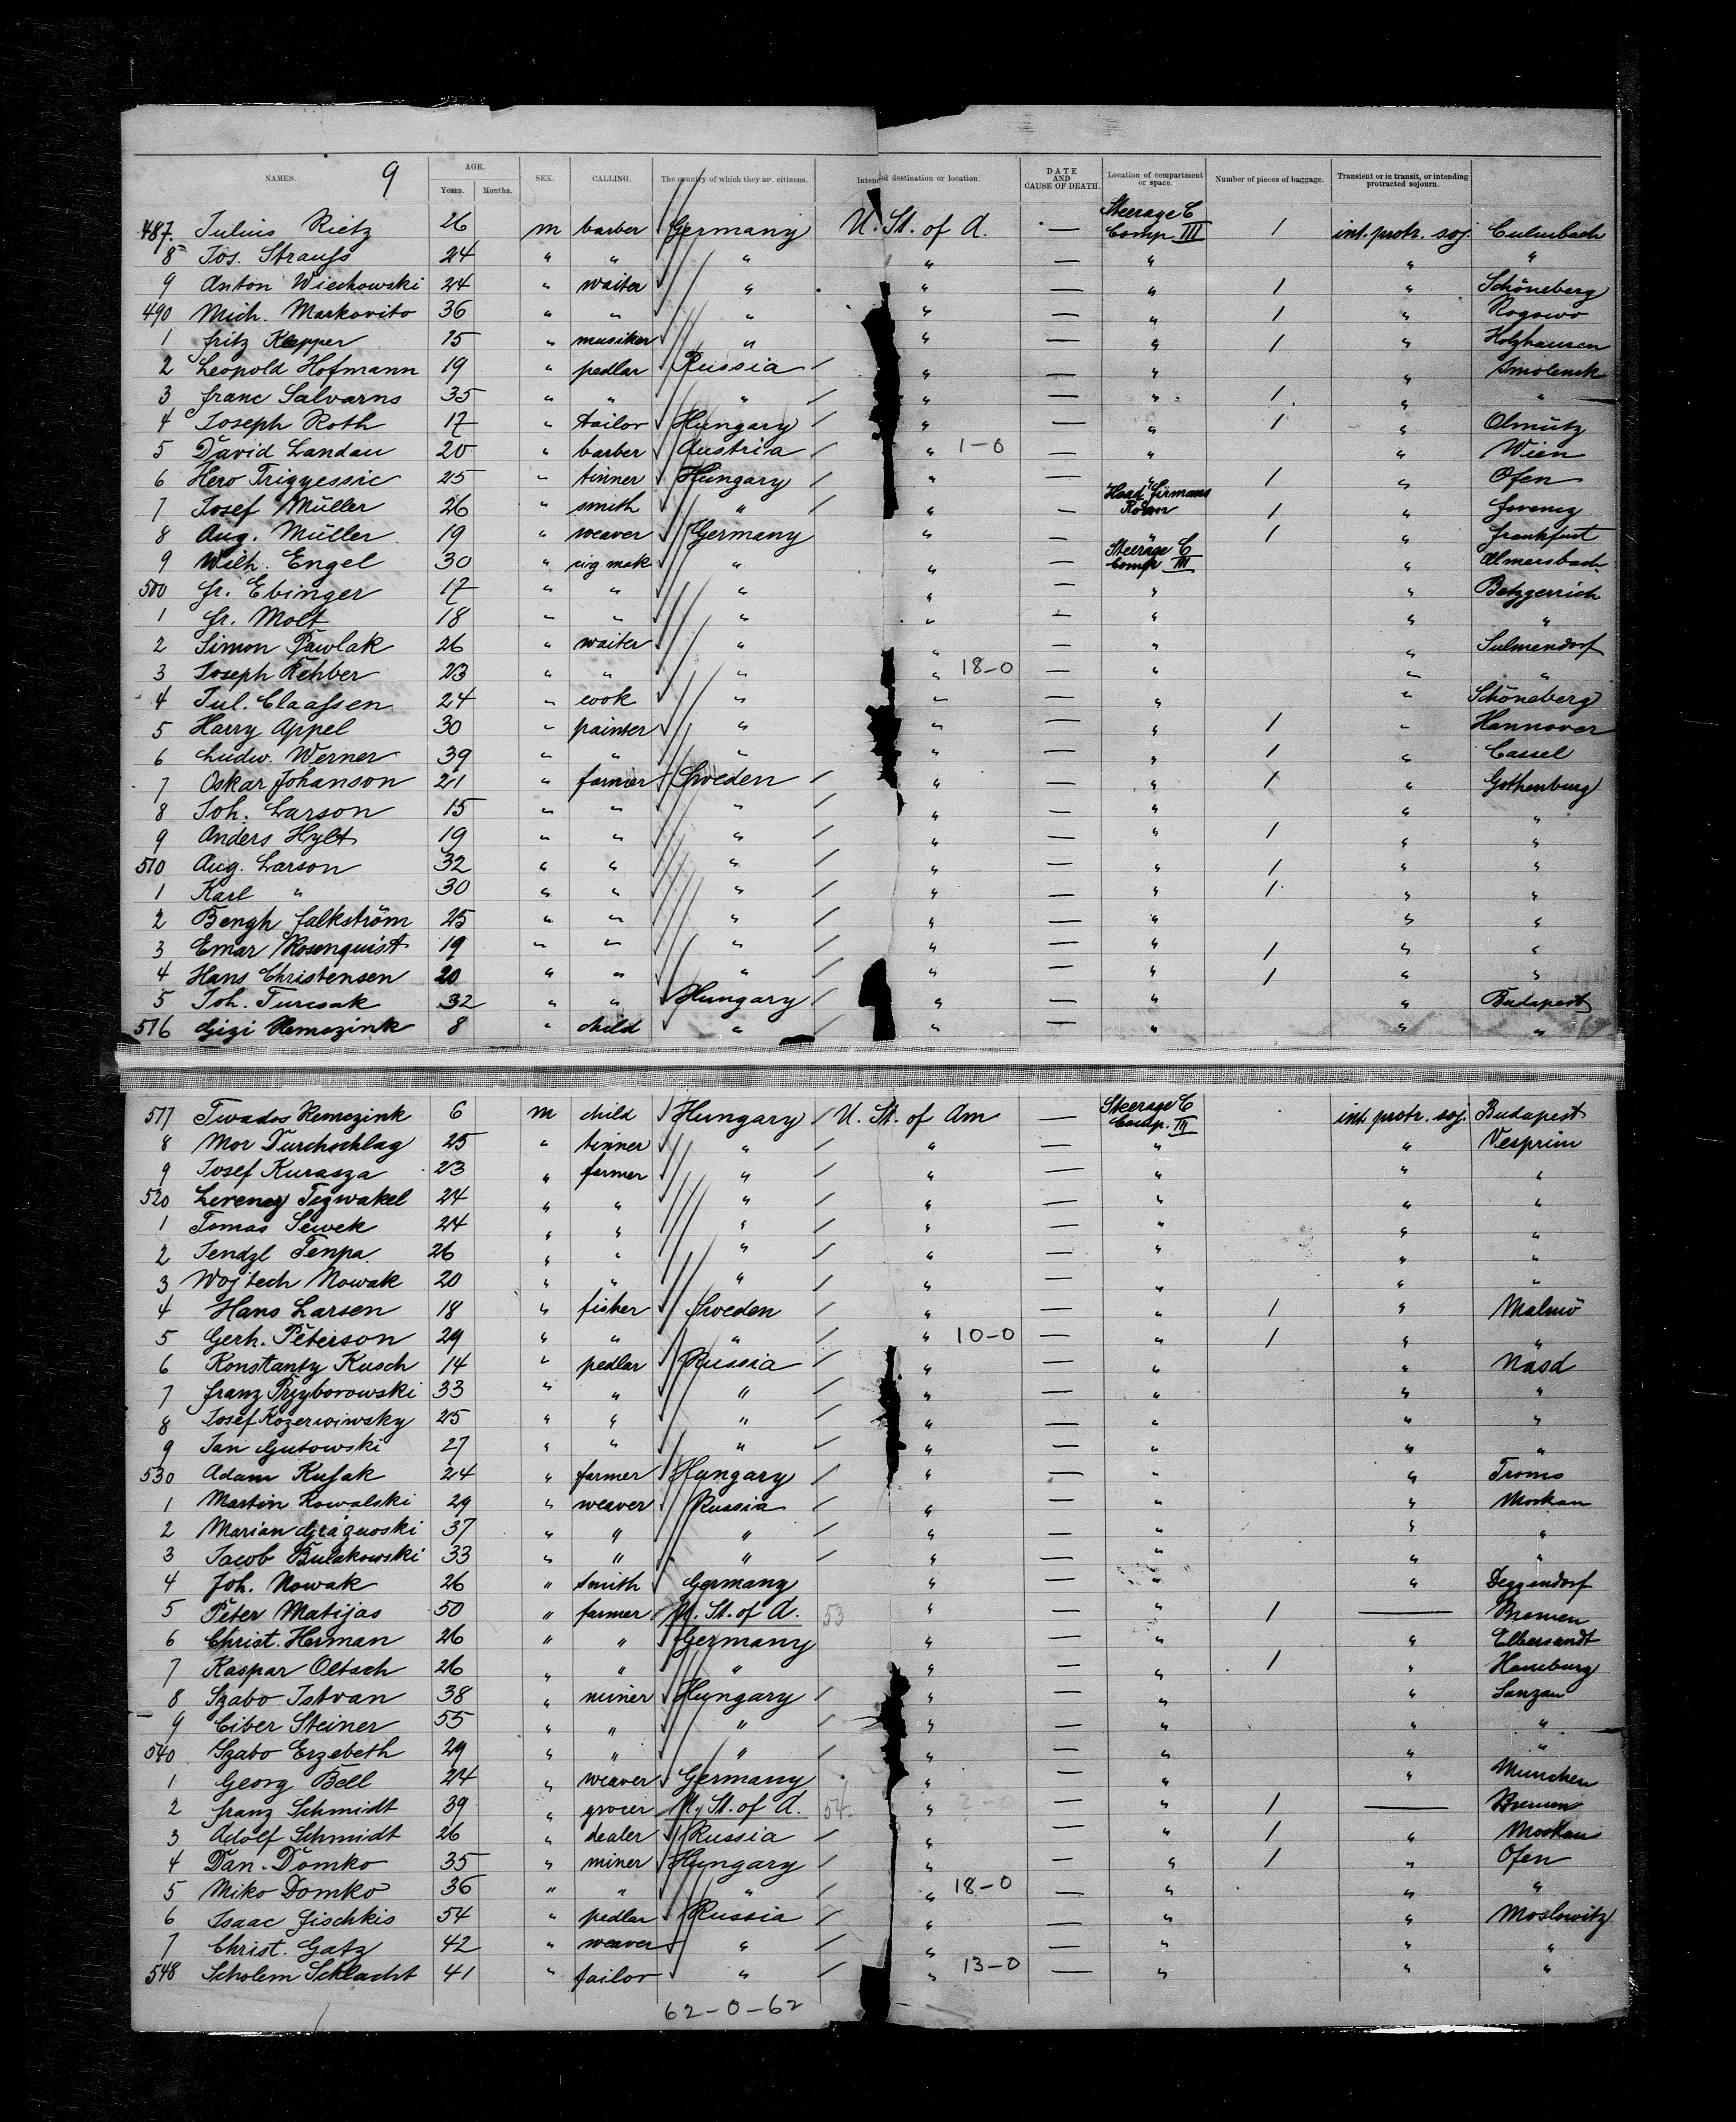 9
NAMES. AGE. Years. Months. SEX. CALLING. The country of which they are citizens. Intended destination or location. DATE AND CAUSE OF DEATH. Location of compartment or space. Number of pieces of baggage. Transient or in transit, or intending protracted sojourn.
487. Julius Rietz 26 m barber Germany U. St. of A. — Steerage C Comp III 1 int. protr. soj. Culmbach
8 Jos. Strauss 24 " " " " — " " "
9 Anton Wiechowski 24 " waiter " " — " 1 " Schöneberg
490 Mich. Markovito 36 " " " " — " 1 " Rogowo
1 Fritz Klepper 15 " musiker " " — " 1 " Holzhausen
2 Leopold Hofmann 19 " pedlar Russia / " — " " Smolensk
3 Franc Salvarns 35 " " " / " — " 1 " "
4 Joseph Roth 17 " tailor Hungary / " — " 1 " Olmütz
5 David Landau 20 " barber Austria / " 1-0 — " " Wien
6 Hero Trigyessic 25 " tinner Hungary / " — " 1 " Ofen
7 Josef Müller 26 " smith " / " — Room 1 "
8 Aug. Müller 19 " weaver Germany " — " 1 " Frankfurt
9 Wilh. Engel 30 " cig mak " " — Steerage C Comp III " Almersbach
500 Fr. Ebinger 17 " " " " — " " Betzgerrich
1 Fr. Molt 18 " " " " — " " "
2 Simon Pawlak 26 " waiter " " — " " Sulmendorf
3 Joseph Rehber 23 " " " " 18-0 — " " "
4 Jul. Claassen 24 " cook " " — " " Schöneberg
5 Harry Appel 30 " painter " " — " 1 " Hannover
6 Ludw. Werner 39 " " " " — " 1 " Cassel
7 Oskar Johanson 21 " farmer Sweden / " — " 1 " Gothenburg
8 Joh. Larson 15 " " " / " — " " "
9 Anders Hylt 19 " " " / " — " 1 " "
510 Aug. Larson 32 " " " / " — " 1 " "
1 Karl " 30 " " " / " — " 1 " "
2 Bengh Falkström 25 " " " / " — " " "
3 Emar Rosenquist 19 " " " / " — " 1 " "
4 Hans Christensen 20 " " " / " — " 1 " "
5 Joh. Turcsak 32 " " Hungary / " — " " Budapest
516 Gizi Remezink 8 " child " / " — " " "
517 Twados Remezink 6 m child Hungary / U. St. of Am — Steerage C Comp. III int. protr. soj. Budapest
8 Mor Durchschlag 25 " tinner " / " — " " Vesprim
9 Josef Kurasza 23 " farmer " / " — " " "
520 Tezwakel 24 " " " / " — " " "
1 Tomas Sewek 24 " " " / " — " " "
2 Jendzl Tenpa 26 " " " / " — " " "
3 Wojtech Nowak 20 " " " / " — " " "
4 Hans Larsen 18 " fisher Sweden / " — " 1 " Malmö
5 Gerh. Peterson 29 " " " / " 10-0 — " 1 " "
6 Konstanty Kusch 14 " pedlar Russia / " — " " Nasd
7 Franz Przyborowski 33 " " " / " — " " "
8 Josef Kozerwiwsky 25 " " " / " — " " "
9 Jan Gutowski 27 " " " / " — " " "
530 Adam Kusak 24 " farmer Hungary / " — " " Troms
1 Martin Kowalski 29 " weaver Russia / " — " " Moskau
2 Marian 37 " " " / " — " " "
3 Jacob Bulakowski 33 " " " / " — " " "
4 Joh. Nowak 26 " smith Germany " — " " Deggendorf
5 Peter Matijas 50 " farmer U. St. of A. 53 " — " 1 — Bremen
6 Christ. Herman 26 " " Germany " — " "
7 Kaspar Oltsch 26 " " " " — " 1 " Hamburg
8 Szabo Istvan 38 " miner Hungary / " — " " Sanzau
9 Ciber Steiner 55 " " " / " — " " "
540 Szabo Erzebeth 29 " " " / " — " " "
1 Georg Bell 24 " weaver Germany " — " " München
2 Franz Schmidt 39 " grocer U. St. of A. 54 " 2-0 — " 1 — Bremen
3 Adolf Schmidt 26 " dealer Russia / " — " 1 " Moskau
4 Dan. Domko 35 " miner Hungary / " — " 1 " Ofen
5 Miko Domko 36 " " " / " 18-0 — " " "
6 Isaac Fischkis 54 " pedlar Russia / " — " " Moslowitz
7 Christ. Gatz 42 " weaver " / " — " " "
548 Scholem Schlacht 41 " tailor " / " 13-0 — " " "
62-0-62